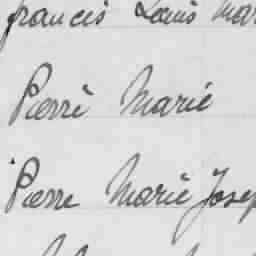 Francis Louis Mar
Pierre Marie
Pierre Marie Josep